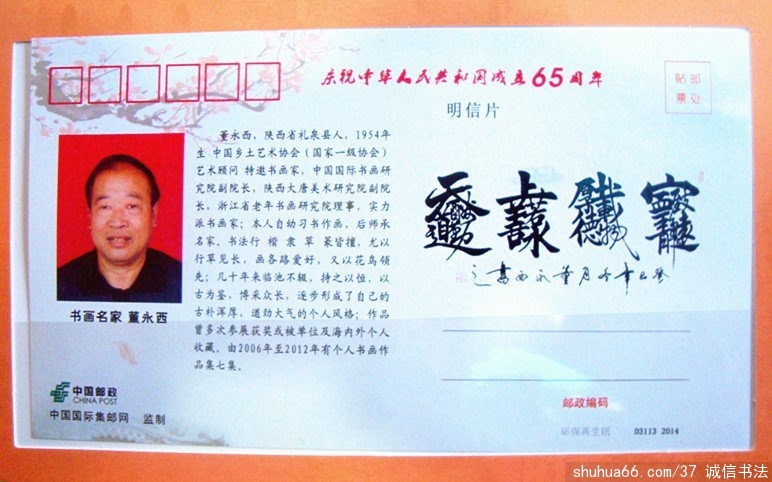 庆祝中华人民共和国成立65周年
明信片
贴邮
票处
董永西，陕西省礼泉县人，1954年
生 中国乡土艺术协会（国家一级协会）
艺术顾问 特邀书画家，中国国际书画研
究院副院长，陕西大唐美术研究院副院
长，浙江省老年书画研究院理事，实力
派书画家；本人自幼习书作画，后师承
名家。书法行 楷 隶 草 篆皆擅，尤以
行草见长，画各路爱好，又以花鸟领
先；几十年来临池不辍，持之以恒，以
古为鉴，博采众长，逐步形成了自己的
古朴浑厚，遒劲大气的个人风格；作品
曾多次参展获奖或被单位及海内外个人
收藏。由2006年至2012年有个人书画作
品集七集。
书画名家 董永西
中国邮政
CHINA POST
中国国际集邮网 监制
邮政编码
环保再生纸 D3113 2014
shuhua66.com/37 诚信书法